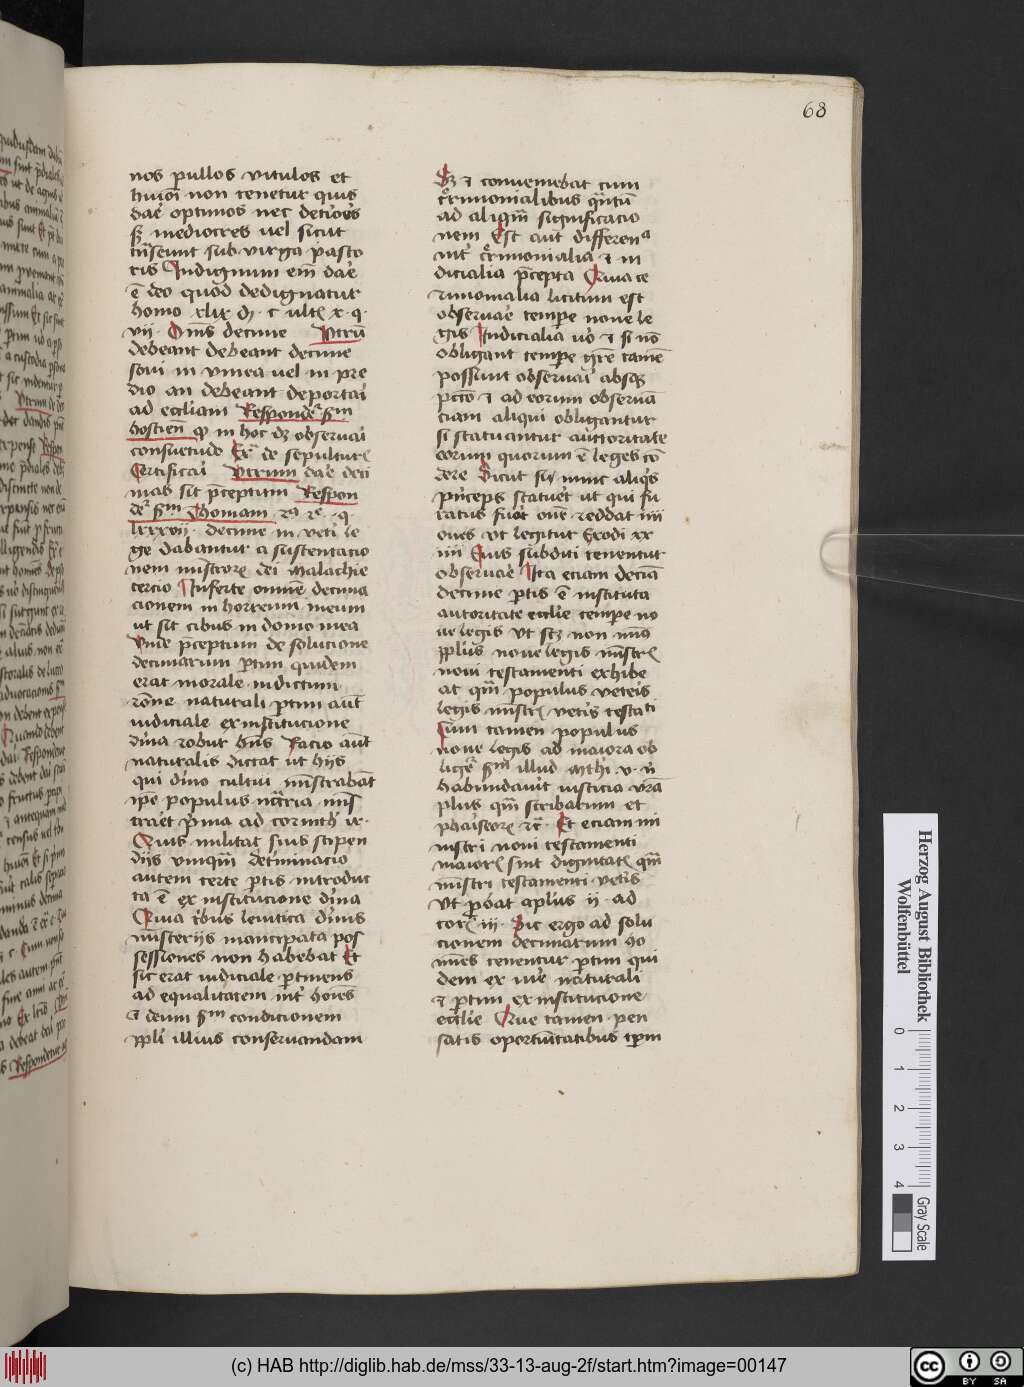 68
nos pullos vitulos et
huiōi non tenetur quis
dar̄e optimos nec detiōes
sʒ mediocres vel sicut
trāseunt sub virga pasto
ris Indignum em̄ dar̄e
ē deo quod dedignatur
homo xlix di · c ult ꝛ x · q ·
vij · Om̄s decime Vtrū
debeant debeant decime
solui in vinea vel in pre
dio an debeant deportai
ad eccliam Respondet sm
hostien̄ ꝙ in hoc dʒ obseruai
consuetudo Ex de sepultur
Certificai Vtrum dar̄e deci
mas sit p̄ceptum Respon
det sm Thomam
lxxxvij · decime in veti le
ge dabantur a sustentacio
nem mīstroꝝ dei malachie
tercio Inferte omnē decima
cionem in horreum meum
ut sit cibus in domo mea
Vnde p̄ceptum de solucione
decimarum ꝑtim quidem
erat morale indictum
rōne naturali ꝑtim aūt
iudiciale ex institucione
diīna robur hn̄s Racio aūt
naturalis dictat ut hijs
qui diīno cultui mīstrabāt
ip̄e populus
ad corinth ix ·
Quis militat suis stipen
dijs vmqm̄ detminacio
autem certe ꝑtis introduc
ta ē ex institucione diīna
Quia tbus leuitica diīnis
misterijs mancipata pos
sessiones non habebat Et
sic erat iudiciale ꝑtinens
ad equalitatem int hoīes
ꝛ deum sm condicionem
ppli illius conseruandam
Sʒ ꝛ conueniebat cum
cerimonialibus qntū
ad aliqm̄ significacio
nem Est aūt differena
int cerimonialia ꝛ iu
dicialia p̄cepta Quia ce
rimonialia licitum est
obseruar̄e tempe noue le
gis Iudicialia uo ꝛ si nō
obligant tempe gre tamē
possunt obseruai absqʒ
pccō ꝛ ad eorum obseruā
ciam aliqui obligantur
si statuantur auctoritate
eorum quorum ē leges cō
dere Sicut si nunc aliqs
princeps statuet ut qui fu
ratus fuerit ouē reddat iiii
oues vt legitur Exodi xx
iiii Eius subditi tenentur
obseruar̄e Ita eciam deciā
decime ꝑtis ē instituta
autoritate ecclie tempe no
ue legis Vt scʒ non minus
pplus noue legis mīstris
noui testamenti exhibe
at qm̄ populus veteris
legis mīstris vetis testati
Cum tamen populus
noue legis ad maiora ob
liget sm illud Mthi · v · ni
habundauit iusticia vrā
plus qm̄ scribarum et
phariseoꝝ ꝛc · Et eciam mi
nistri noui testamenti
maioris sint dignitatis qm̄
mīstri testamenti vetis
Vt probat aplus ij · ad
cor iij · Sic ergo ad solu
cionem decimarum ho
mīes tenentur ꝑtim qui
dem ex iure naturali
ꝛ ꝑtim ex institucione
ecclie Que tamen pen
satis oportuītatibus tpm
Herzog August Bibliothek
Wolfenbüttel
0
1
2
3
4
Gray Scale
(c) HAB http://diglib.hab.de/mss/33-13-aug-2f/start.htm?image=00147
cc
BY SA